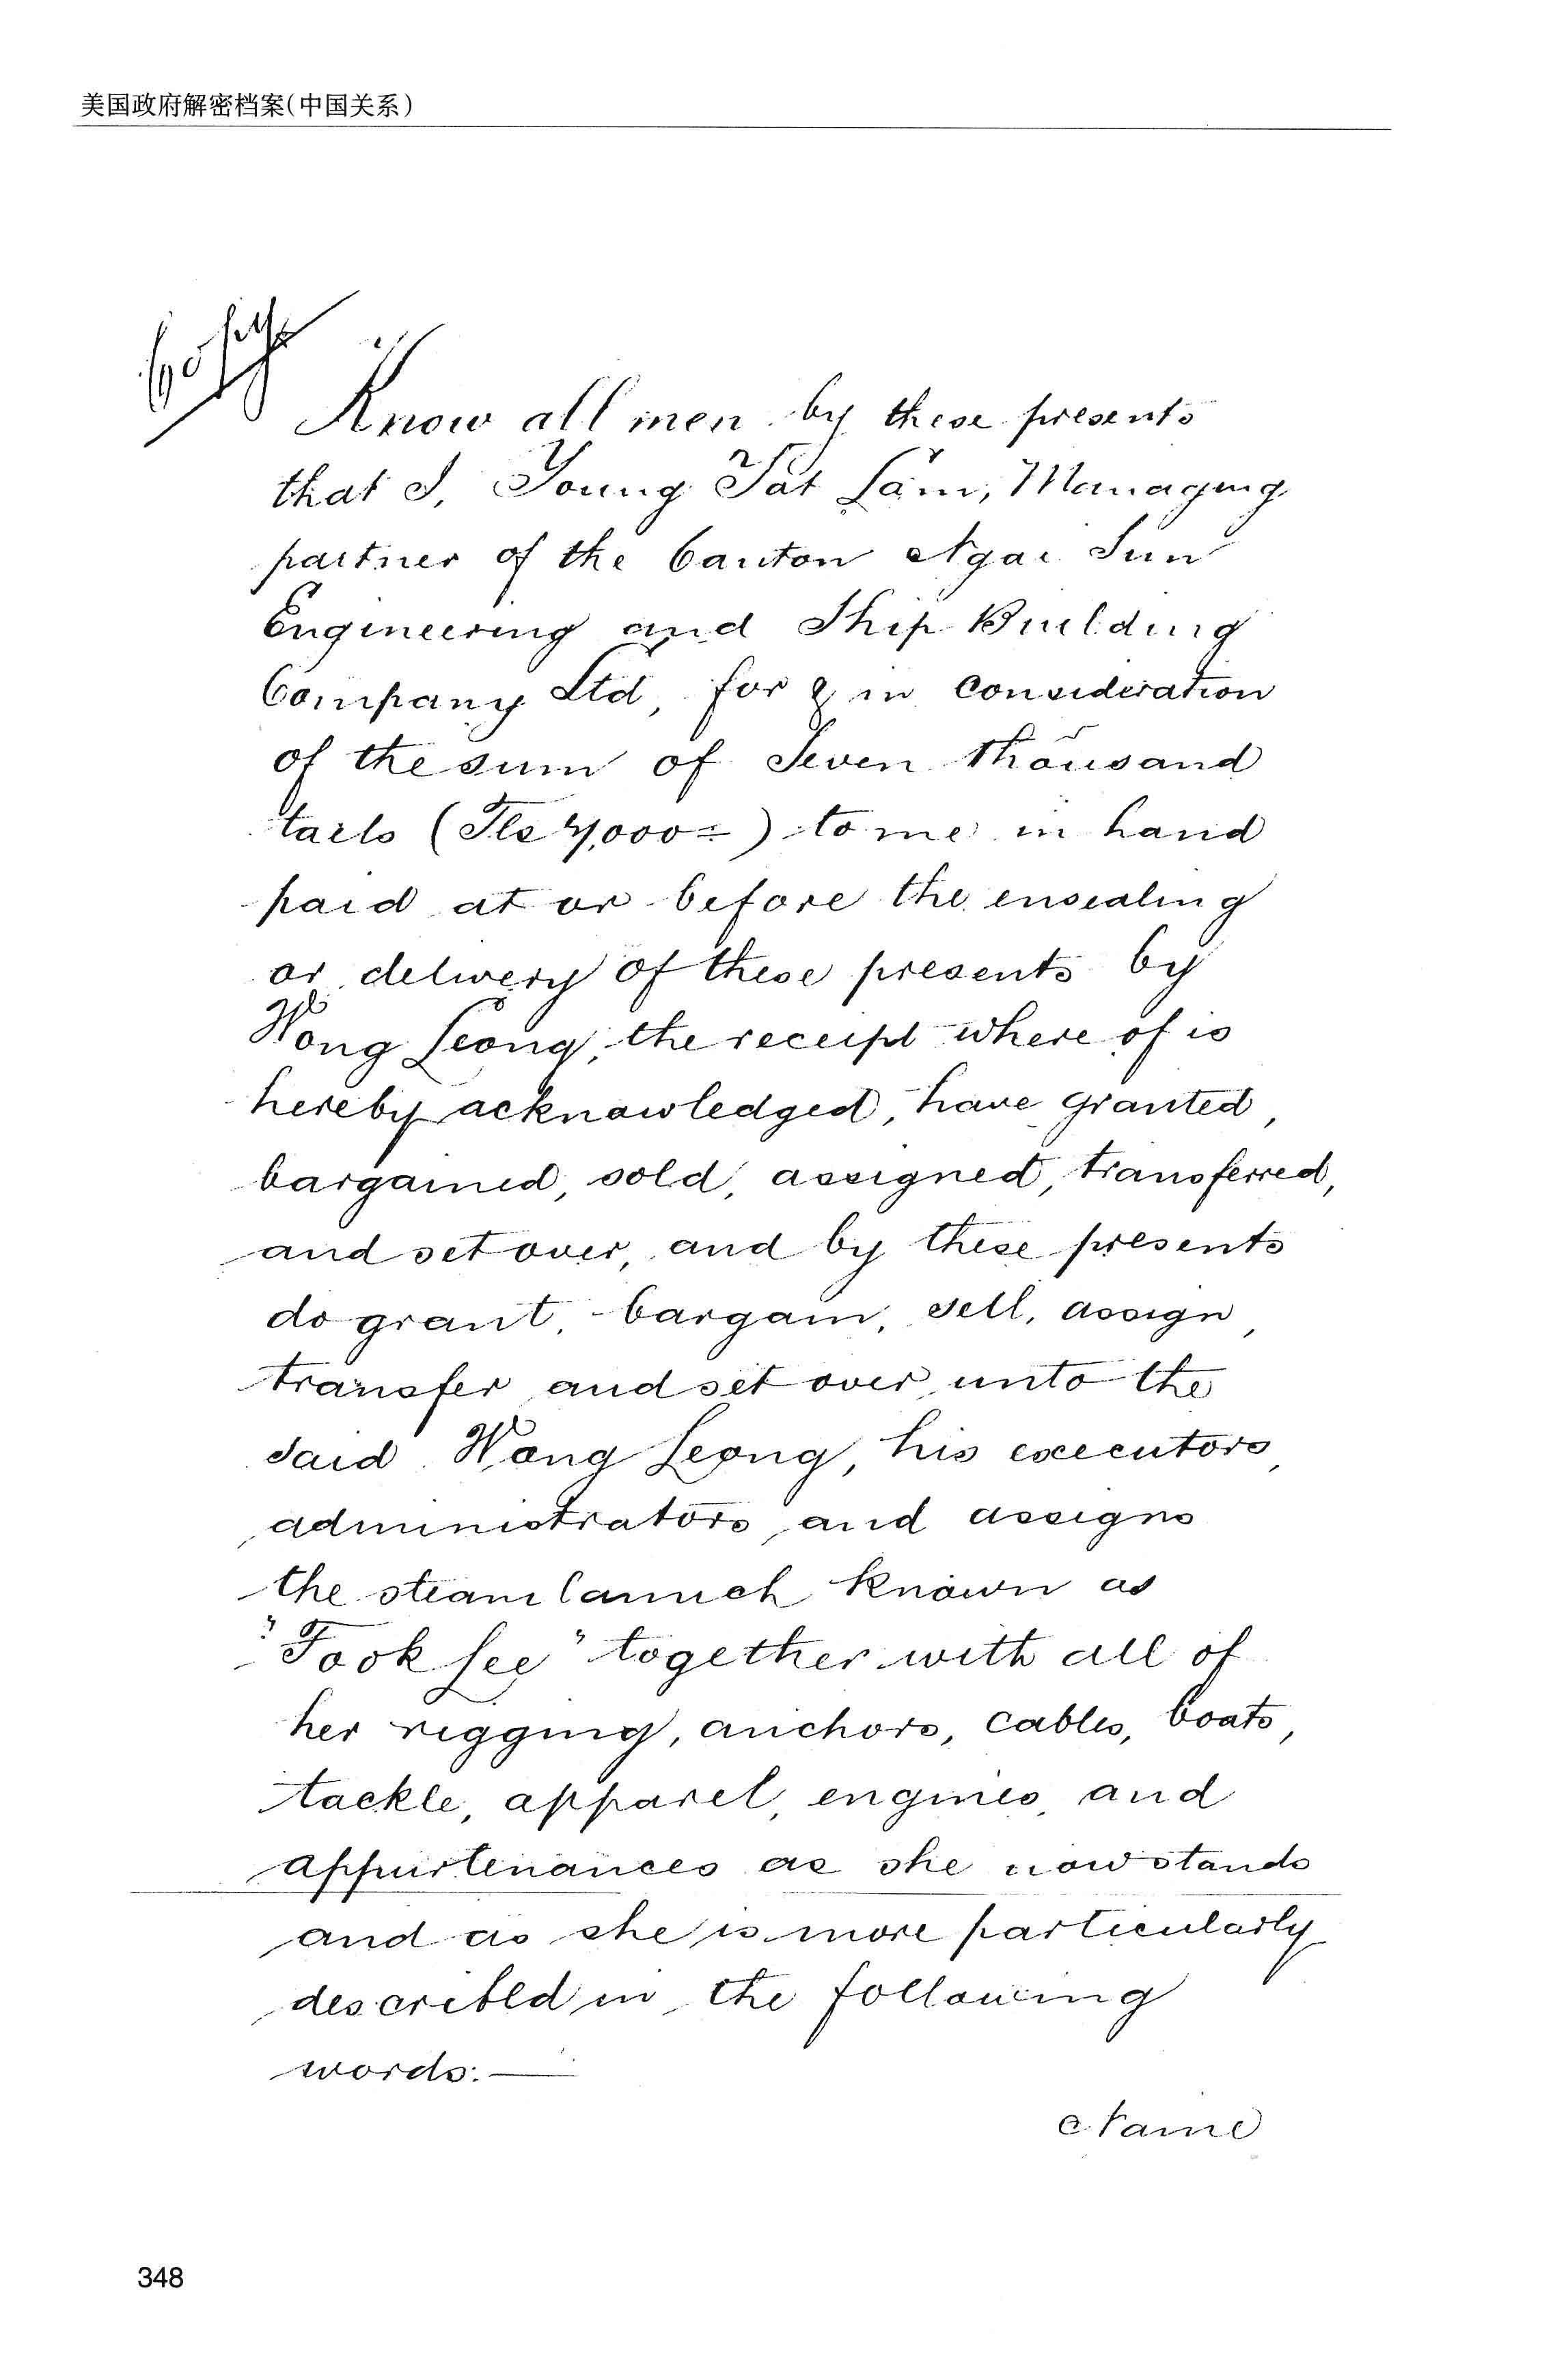 美国政府解密档案(中国关系)
Know all men by these presents
that I, Young Tat Lam, Managing
partner of the Canton Ngai Sun
Engineering and Ship Building
Company Ltd, for & in consideration
of the sum of Seven thousand
taels (Tls 7,000=) to me in hand
paid at or before the ensealing
or delivery of these presents by
Wong Leong, the receipt where of is
hereby acknowledged, have granted,
bargained, sold, assigned, transferred,
and set over, and by these presents
do grant, bargain, sell, assign,
transfer and set over, unto the
said Wong Leong, his executors,
administrators, and assigns
the steam launch known as
"Fook Lee" together with all of
her rigging, anchors, cables, boats,
tackle, apparel, engines, and
appurtenances as she now stands
and as she is more particularly
described in the following
words:—
Name
348